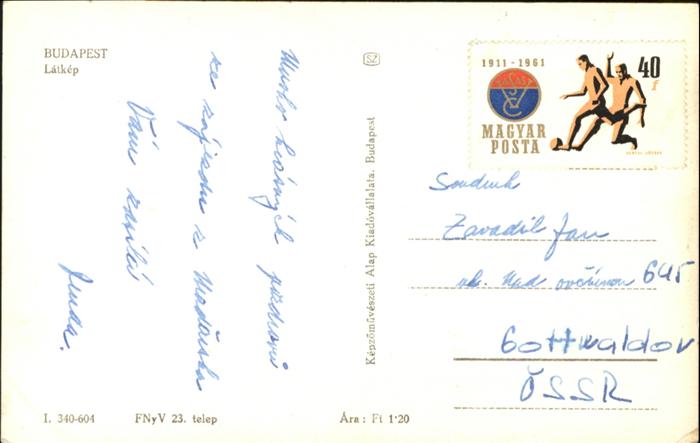 BUDAPEST
Látkép
Mnoho krásných pozdravů
ze zájezdu z Maďarska
Vám zasílá
Jenda.
I. 340-604
FNyV 23. telep
Ára : Ft 1·20
Képzőművészeti Alap Kiadóvállalata, Budapest
SZ
1911-1961
VASAS
SC
40
f
MAGYAR
POSTA
Soudruh
Zavadil Jan
ul. Nad ovčírnou 645
Gottwaldov
ČSSR